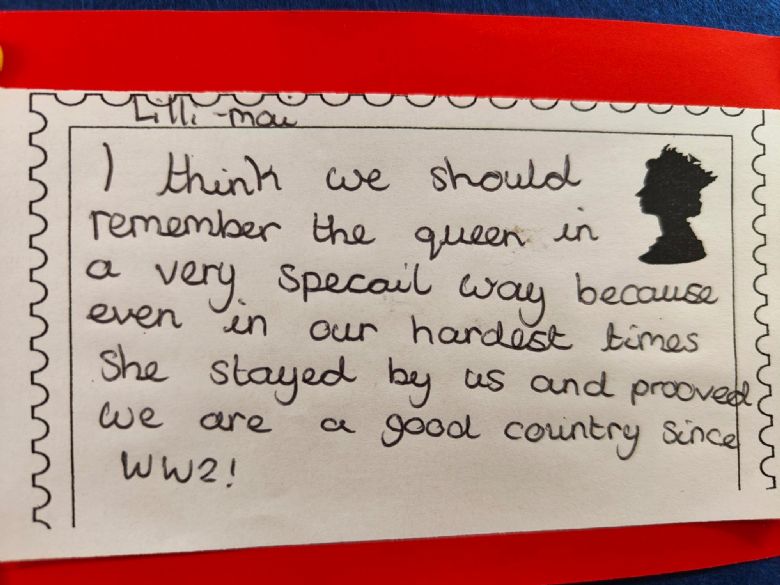 Lilli-mai
I think we should
remember the queen in
a very specail way because
even in our hardest times
She stayed by us and prooved
we are a good country since
WW2!